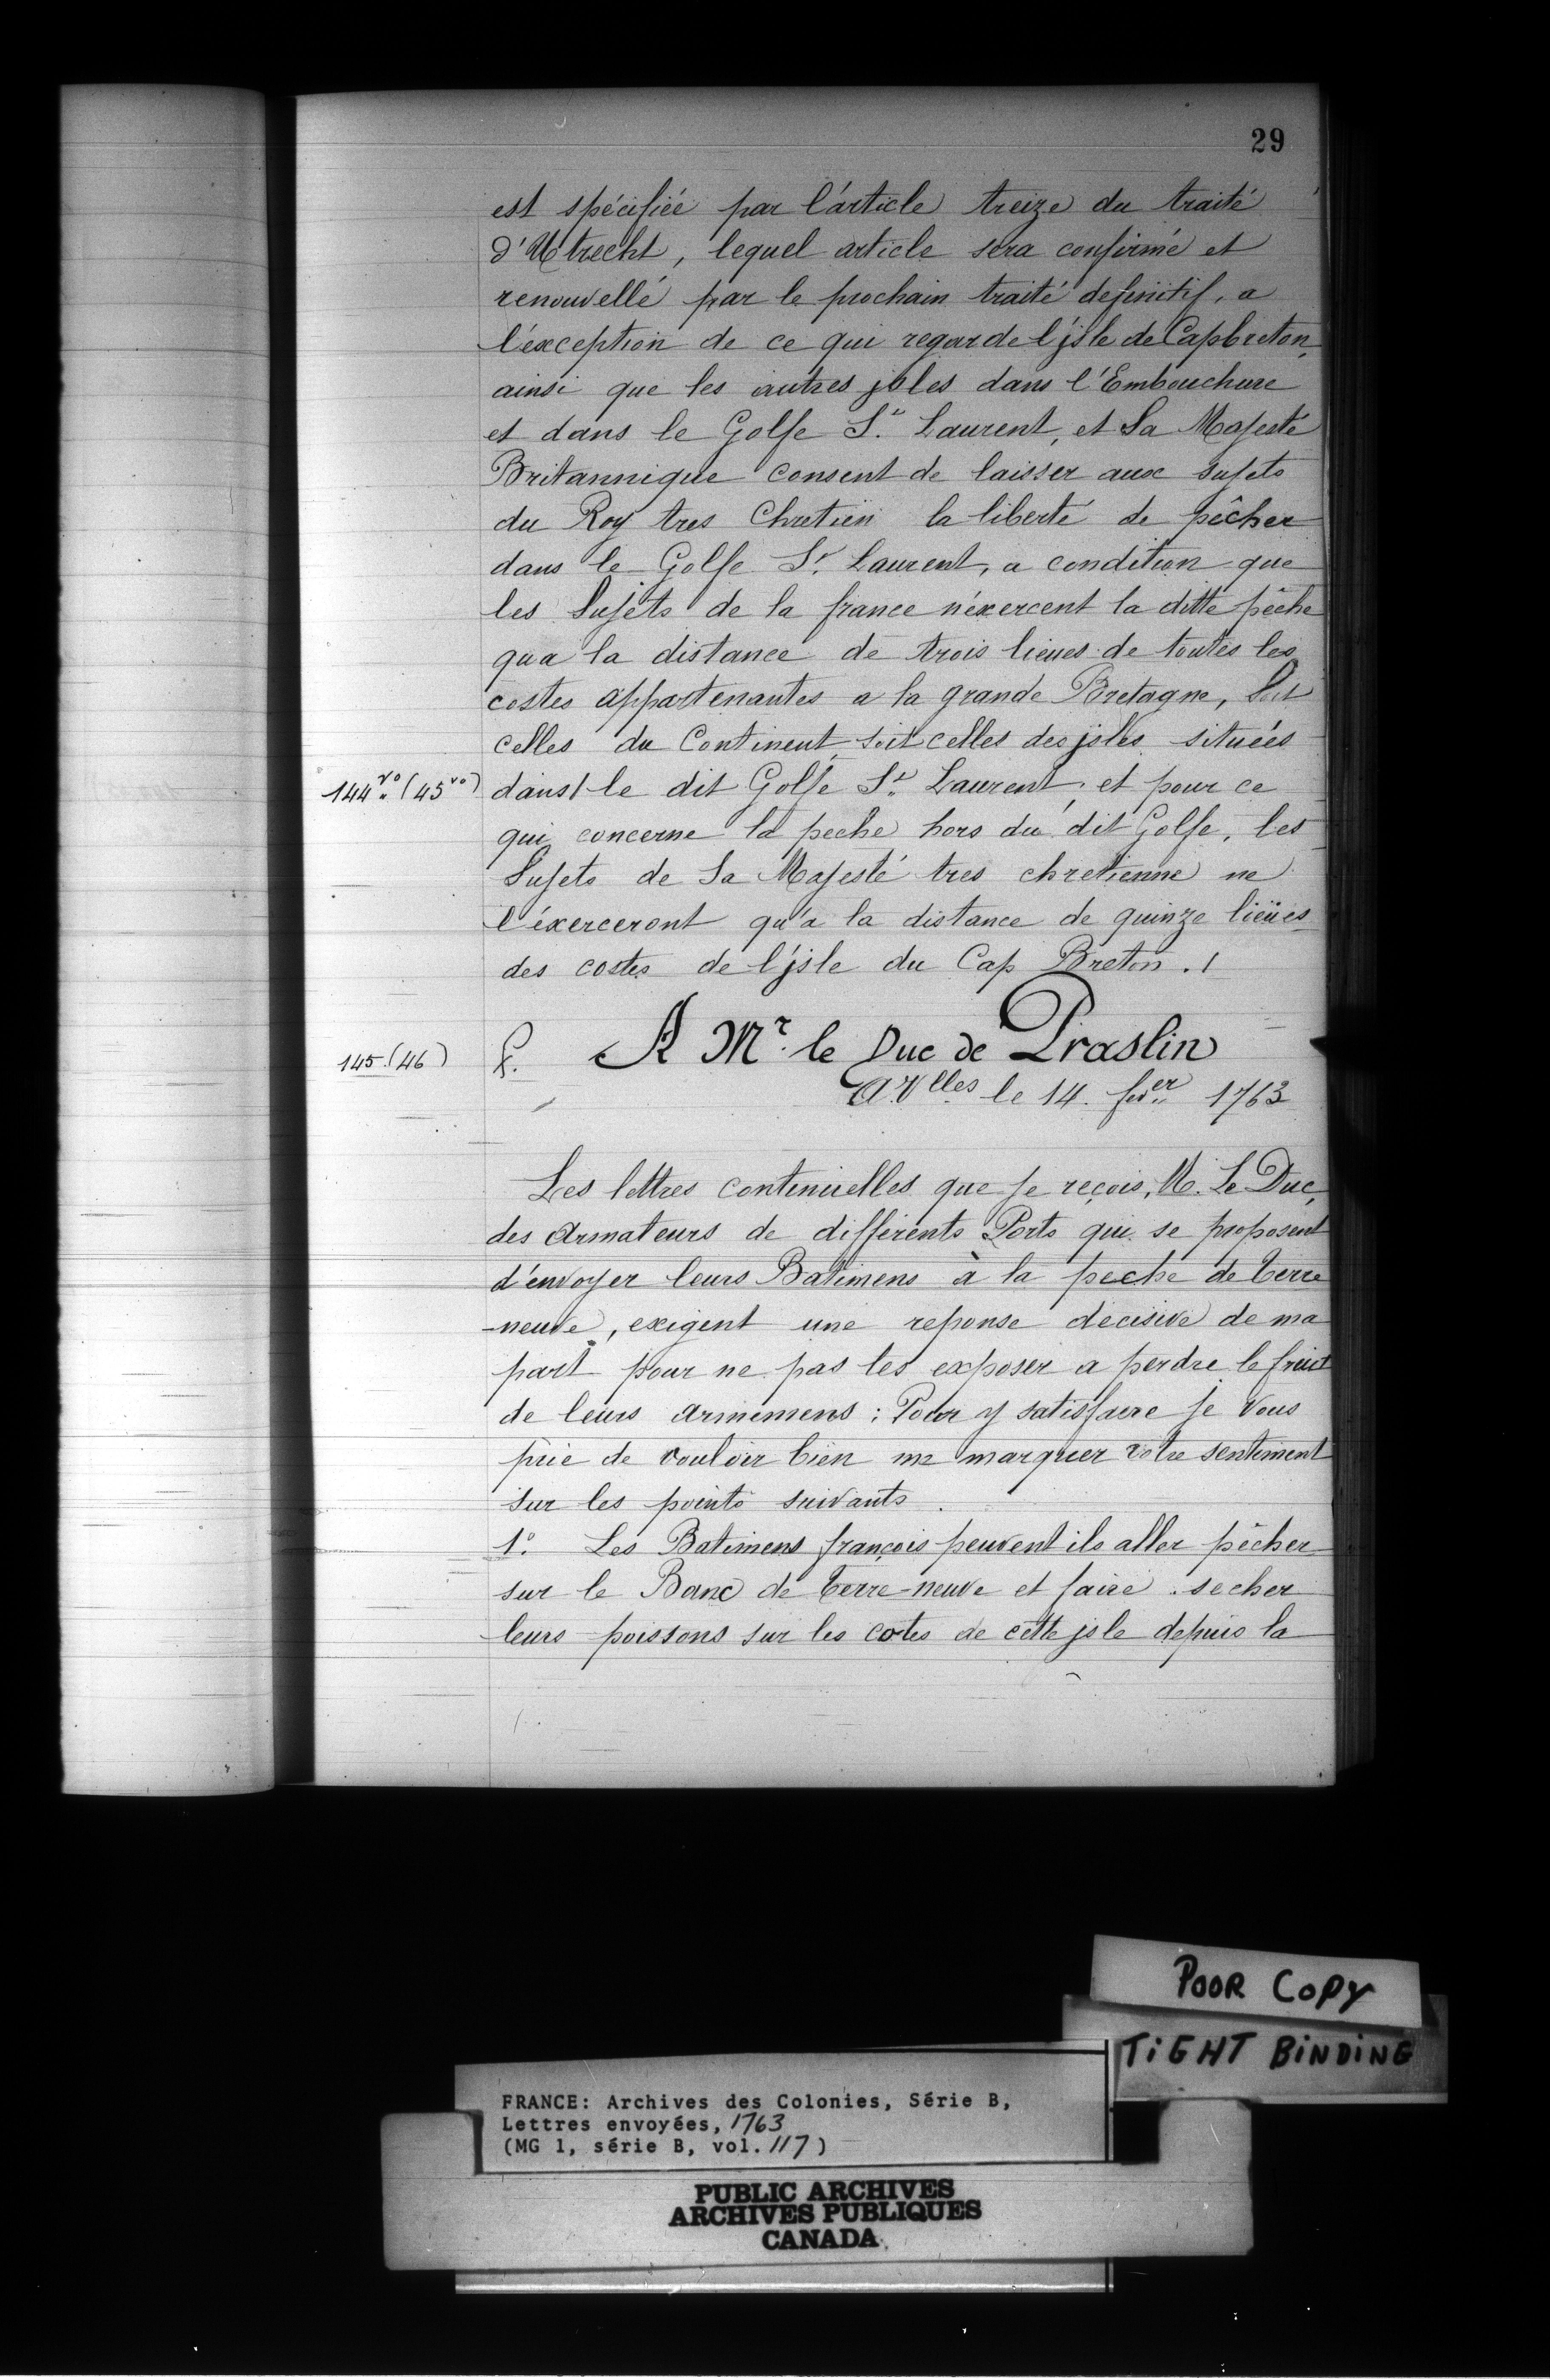 29
est spécifiée par l'article treize du traité
d'Utrecht, lequel article sera confirmé et
renouvellé par le prochain traité definitif, a
l'éxception de ce qui regarde l'jsle de Capbreton,
ainsi que les autres jsles dans l'Embouchure
et dans le Golfe St. Laurent, et Sa Majesté
Britannique consent de laisser aux sujets
du Roy tres Chretien la liberté de pêcher
dans le Golfe St. Laurent, a condition que
les Sujets de la france n'éxercent la ditte pêche
qu'a la distance de trois lieues de toutes les
costes appartenantes a la grande Bretagne, Soit
celles du Continent, soit celles des jsles situées
144 vo. (45 vo) dans/ le dit Golfe St. Laurent, et pour ce
qui concerne la peche hors du dit Golfe, les
Sujets de Sa Majesté tres chretienne ne
l'éxerceront qu'a la distance de quinze lieües
des costes de l'jsle du Cap Breton. /
145 (46) A Mr. le Duc de Praslin
a Vlles le 14. fer. 1763
Les lettres continuelles que je reçois, M. Le Duc,
des Armateurs de différents Ports qui se proposent
d'envoyer leurs Batimens à la peche de terre
-neuve, exigent une reponse décisive de ma
part pour ne pas les exposer a perdre le fruit
de leurs armemens : Pour y satisfaire je vous
prie de vouloir bien me marquer votre sentiment
sur les points suivants.
1o. Les Batimens françois peuvent ils aller pêcher
sur le Banc de terre-neuve et faire secher
leurs poissons sur les cotes de cette jsle depuis la
POOR COPY
TIGHT BINDING
FRANCE: Archives des Colonies, Série B,
Lettres envoyées, 1763
(MG 1, série B, vol. 117)
PUBLIC ARCHIVES
ARCHIVES PUBLIQUES
CANADA